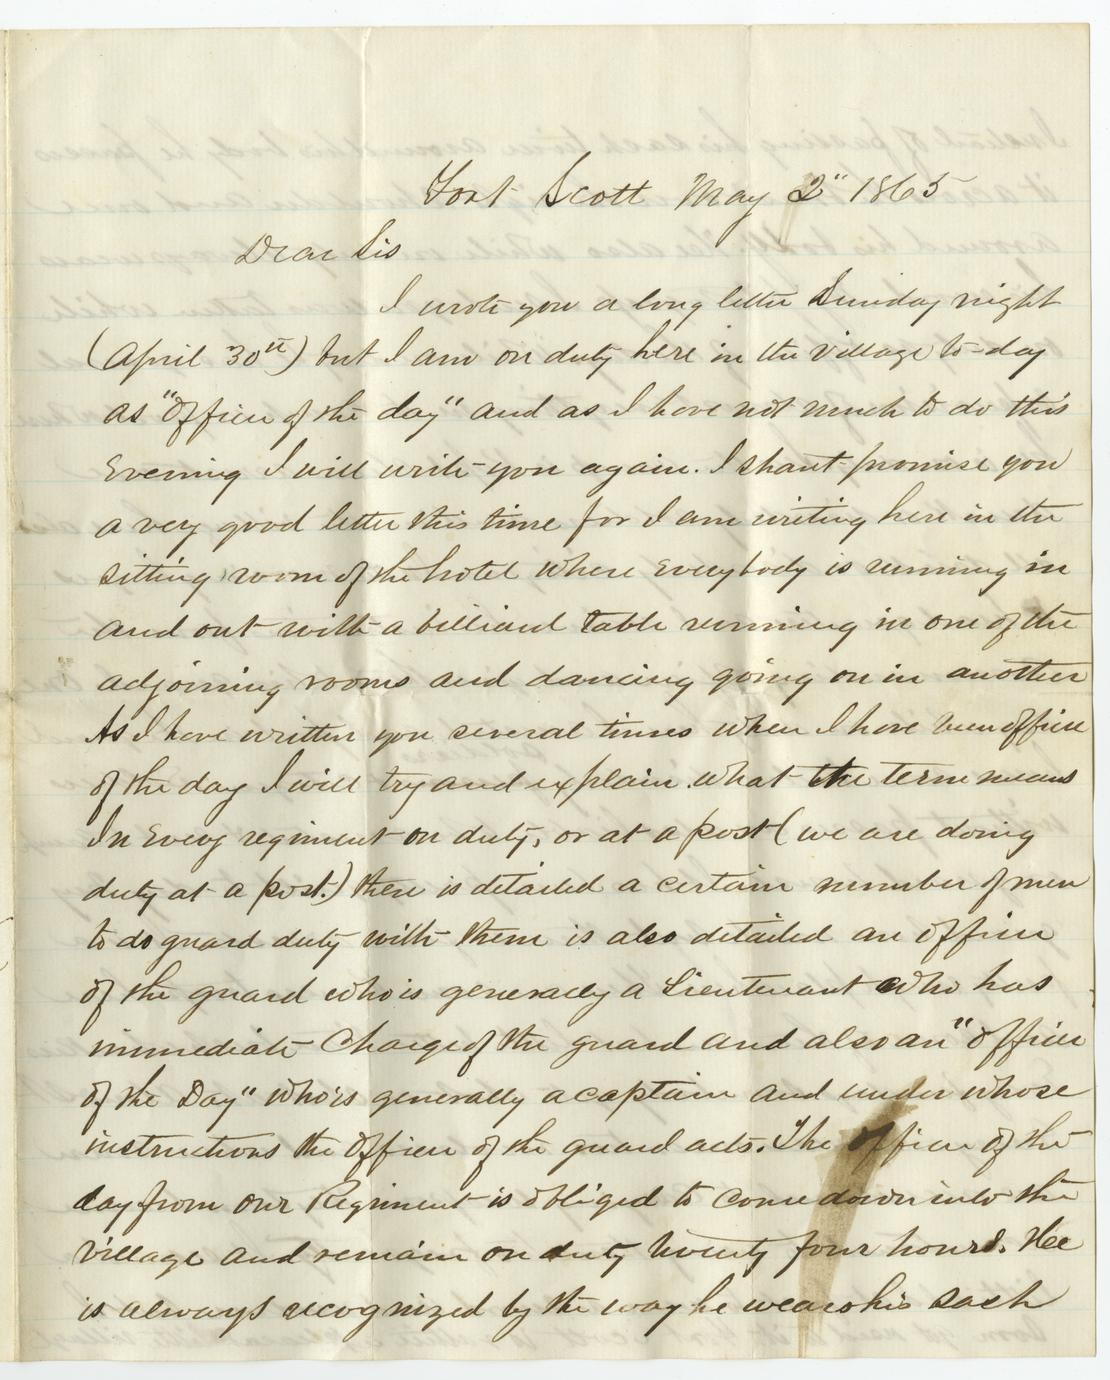 Fort Scott May 2" 1865
Dear Sis
I wrote you a long letter Sunday night
(April 30th) but I am on duty here in the village to-day
as "Officer of the day" and as I have not much to do this
Evening I will write you again. I shant promise you
a very good letter this time for I am writing here in the
sitting room of the hotel where Everybody is running in
and out with a billiard table running in one of the
adjoining rooms and dancing going on in another
As I have written you several times when I have been officer
of the day I will try and explain what the term means
In Every regiment on duty, or at a post (we are doing
duty at a post.) there is detailed a certain number of men
to do guard duty with them is also detailed an officer
of the guard who is generally a Lieutenant who has
immediate Charge of the guard and also an "officer
of the Day" who is generally a captain and under whose
instructions the Officer of the guard acts. The officer of the
day from our Regiment is obliged to come down into the
village and remain on duty twenty four hours. He
is always recognized by the way he wears his sash